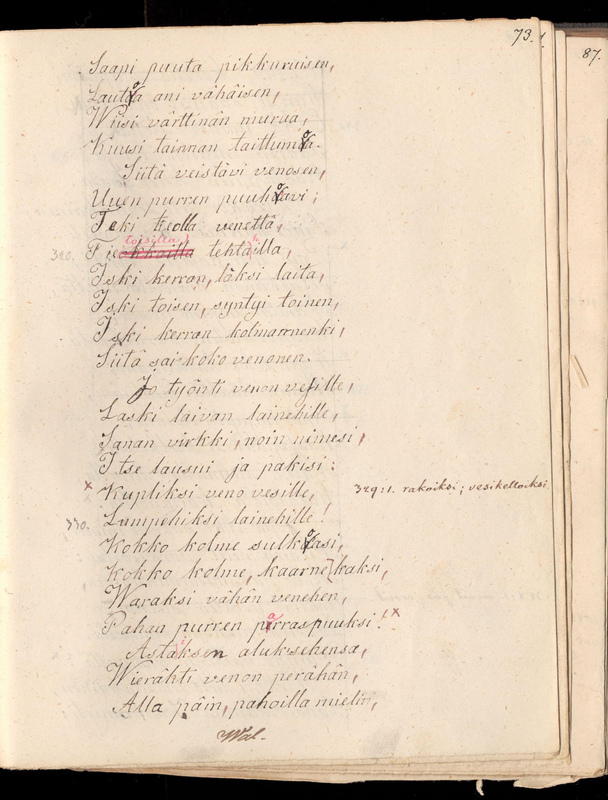 73.
87.
Saapi puuta pikkuruisen,
Lautoa ani vähäisen,
Wiisi värttinän murua,
Kuusi tainnan taittumoa.
Siitä veistävi venosen,
Uuen purren puuhoavi;
Teki teolla venettä,
toisilla
320. Tieokkailla tehtahilla,
Iski kerran, läksi laita,
Iski toisen, syntyi toinen,
Iski kerran kolmannenki,
Siitä sai koko venonen.
Jo työnti venon vesille,
Laski laivan lainehille,
Sanan virkki, noin nimesi,
Itse lausui ja pakisi:
x Kupliksi veno vesille, 329:1. rakoiksi; vesikelloiksi
330. Lumpehiksi lainehille!
Kokko kolme sulkoasi,
Kokko kolme, kaarne kaksi,
Waraksi vähän venehen,
Pahan purren parraspuuksi! x
Astäiksen aluksehensa,
Wierähti venon perähän,
Alla päin, pahoilla mielin,
Wal.